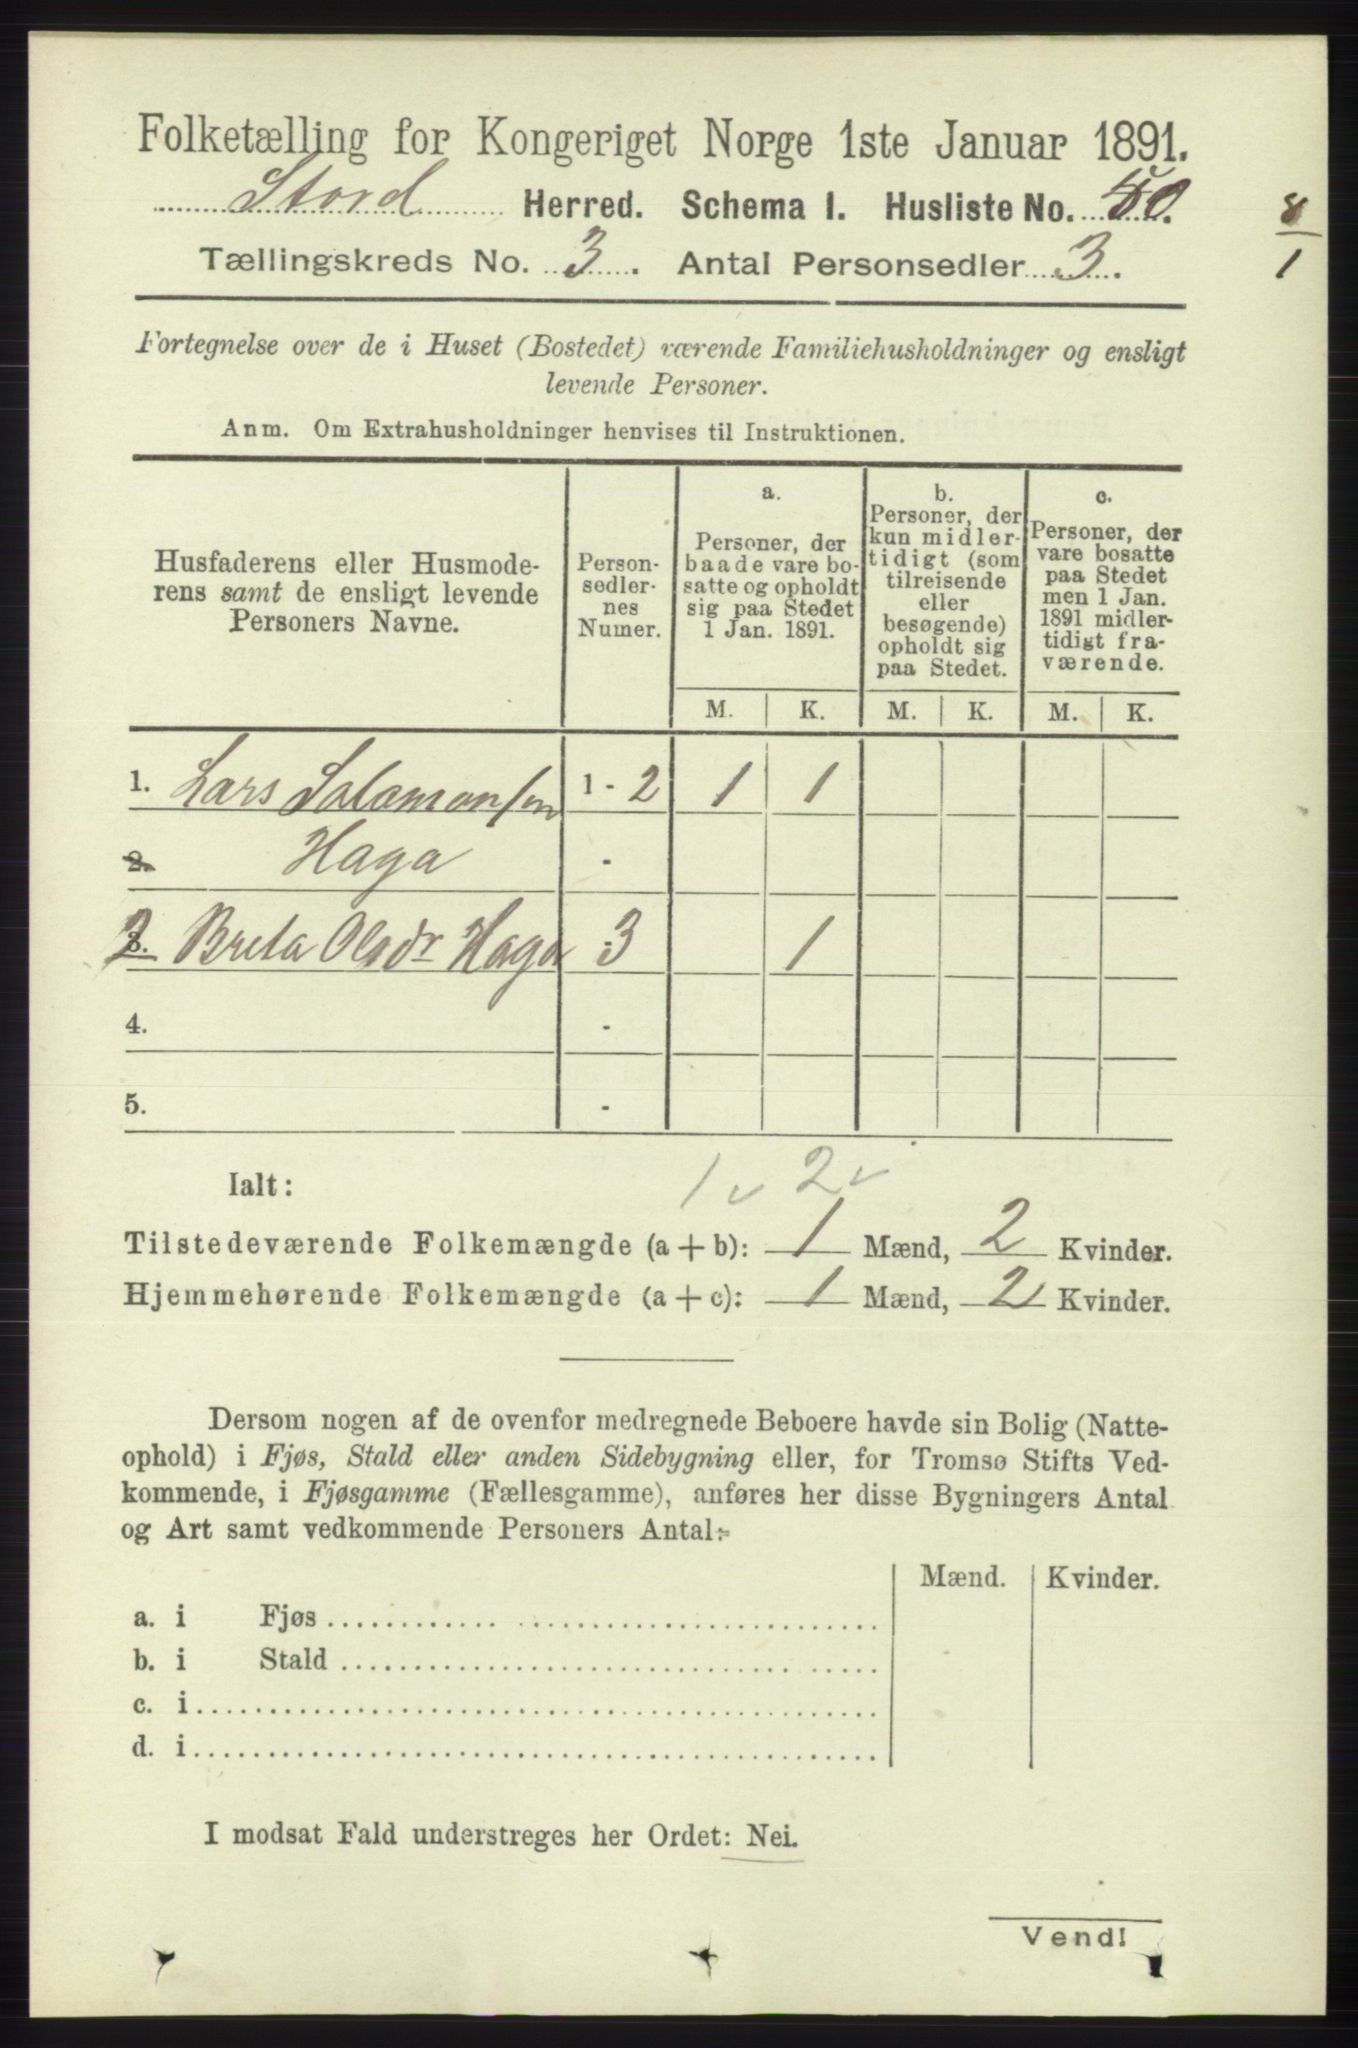 Folketælling for Kongeriget Norge 1ste Januar 1891.
Stord Herred. Schema I. Husliste No. 50.
8
1
Tællingskreds No. 3. Antal Personsedler 3.
Fortegnelse over de i Huset (Bostedet) værende Familiehusholdninger og ensligt
levende Personer.
Anm. Om Extrahusholdninger henvises til Instruktionen.
Husfaderens eller Husmode-
rens samt de ensligt levende
Personers Navne.
Person-
sedler-
nes
Numer.
a.
Personer, der
baade vare bo-
satte og opholdt
sig paa Stedet
1 Jan. 1891.
b.
Personer, der
kun midler-
tidigt (som
tilreisende
eller
besøgende)
opholdt sig
paa Stedet.
c.
Personer, der
vare bosatte
paa Stedet
men 1 Jan.
1891 midler-
tidigt fra-
værende.
M. K. M. K. M. K.
1. Lars Salamonsen 1 - 2 1 1
2. Haga -
2 3. Breta Olsdr Haga 3 1
4. -
5. -
Ialt:
1 2
Tilstedeværende Folkemængde (a + b): 1 Mænd, 2 Kvinder.
Hjemmehørende Folkemængde (a + c): 1 Mænd, 2 Kvinder.
Dersom nogen af de ovenfor medregnede Beboere havde sin Bolig (Natte-
ophold) i Fjøs, Stald eller anden Sidebygning eller, for Tromsø Stifts Ved-
kommende, i Fjøsgamme (Fællesgamme), anføres her disse Bygningers Antal
og Art samt vedkommende Personers Antal:
Mænd. Kvinder.
a. i Fjøs
b. i Stald
c. i
d. i
I modsat Fald understreges her Ordet: Nei.
Vend!